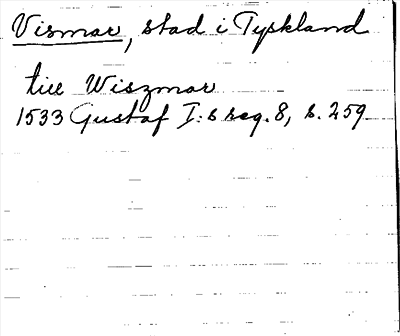 Vismar, stad i Tyskland
till Wiszmar
1533 Gustaf I:s reg. 8, s. 259